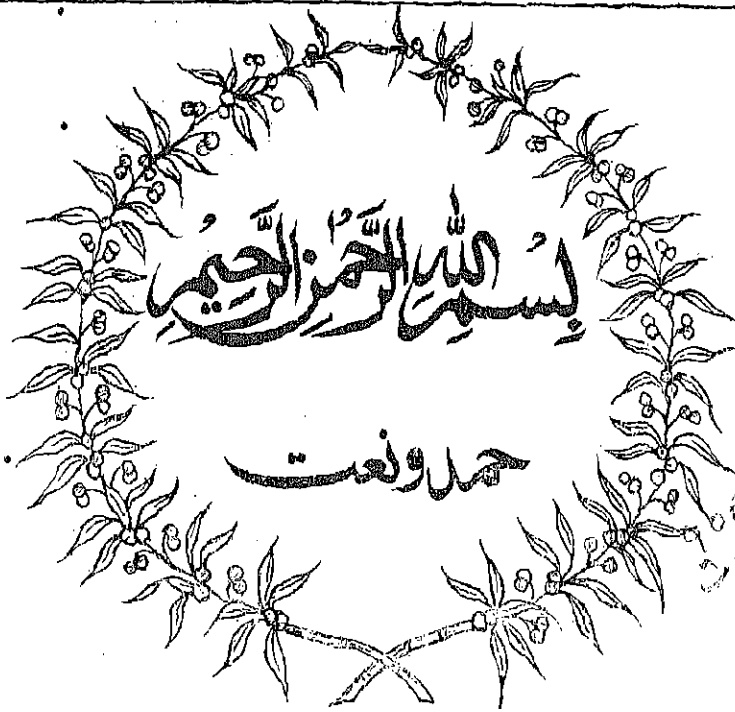 بِسْمِ اللهِ الرَّحْمٰنِ الرَّحِيْمِ
حمد و نعت